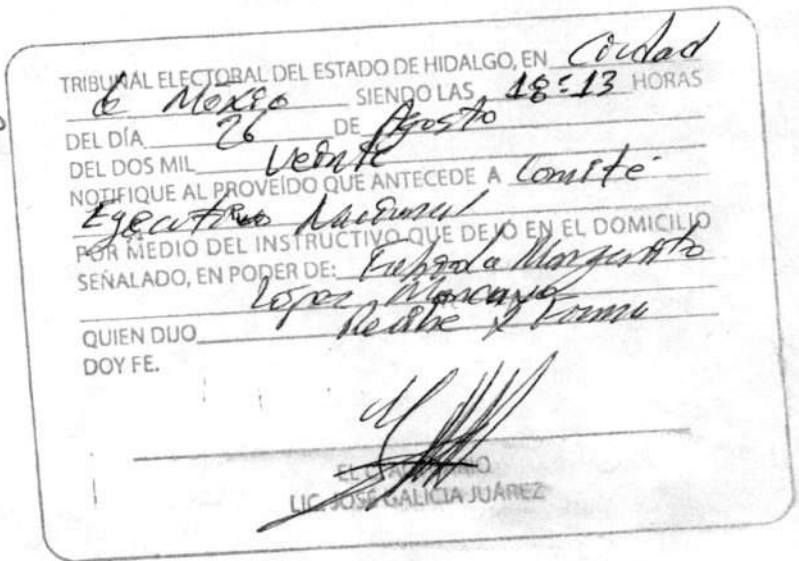 TRIBUNAL ELECTORAL DEL ESTADO DE HIDALGO, EN Ciudad
de México SIENDO LAS 18:13 HORAS
DEL DÍA 26 DE Agosto
DEL DOS MIL Veinte
NOTIFIQUE AL PROVEÍDO QUE ANTECEDE A Comité
Ejecutivo Nacional
POR MEDIO DEL INSTRUCTIVO QUE DEJÓ EN EL DOMICILIO
SEÑALADO, EN PODER DE: Margarito
López
QUIEN DIJO Recibe y Firma
DOY FE.
EL
LIC. JOSÉ GALICIA JUÁREZ